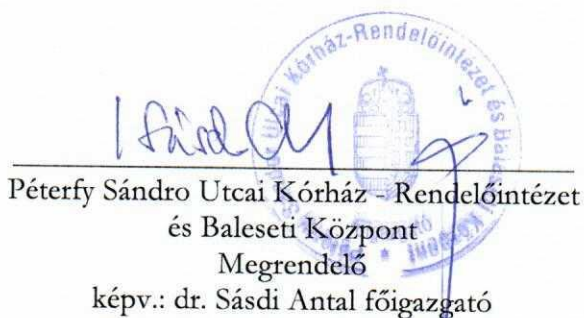 Kórház-Rendelőintézet és Baleseti Központ
Péterfy Sándro Utcai Kórház - Rendelőintézet
és Baleseti Központ
Megrendelő
képv.: dr. Sásdi Antal főigazgató